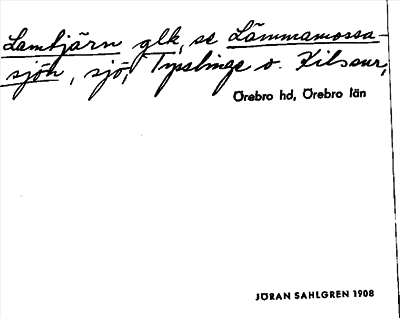 Lamtjärn glk, se Lämmamossa-
sjön, sjö, Tysslinge o. Kilsmr,
Örebro hd, Örebro län
JÖRAN SAHLGREN 1908